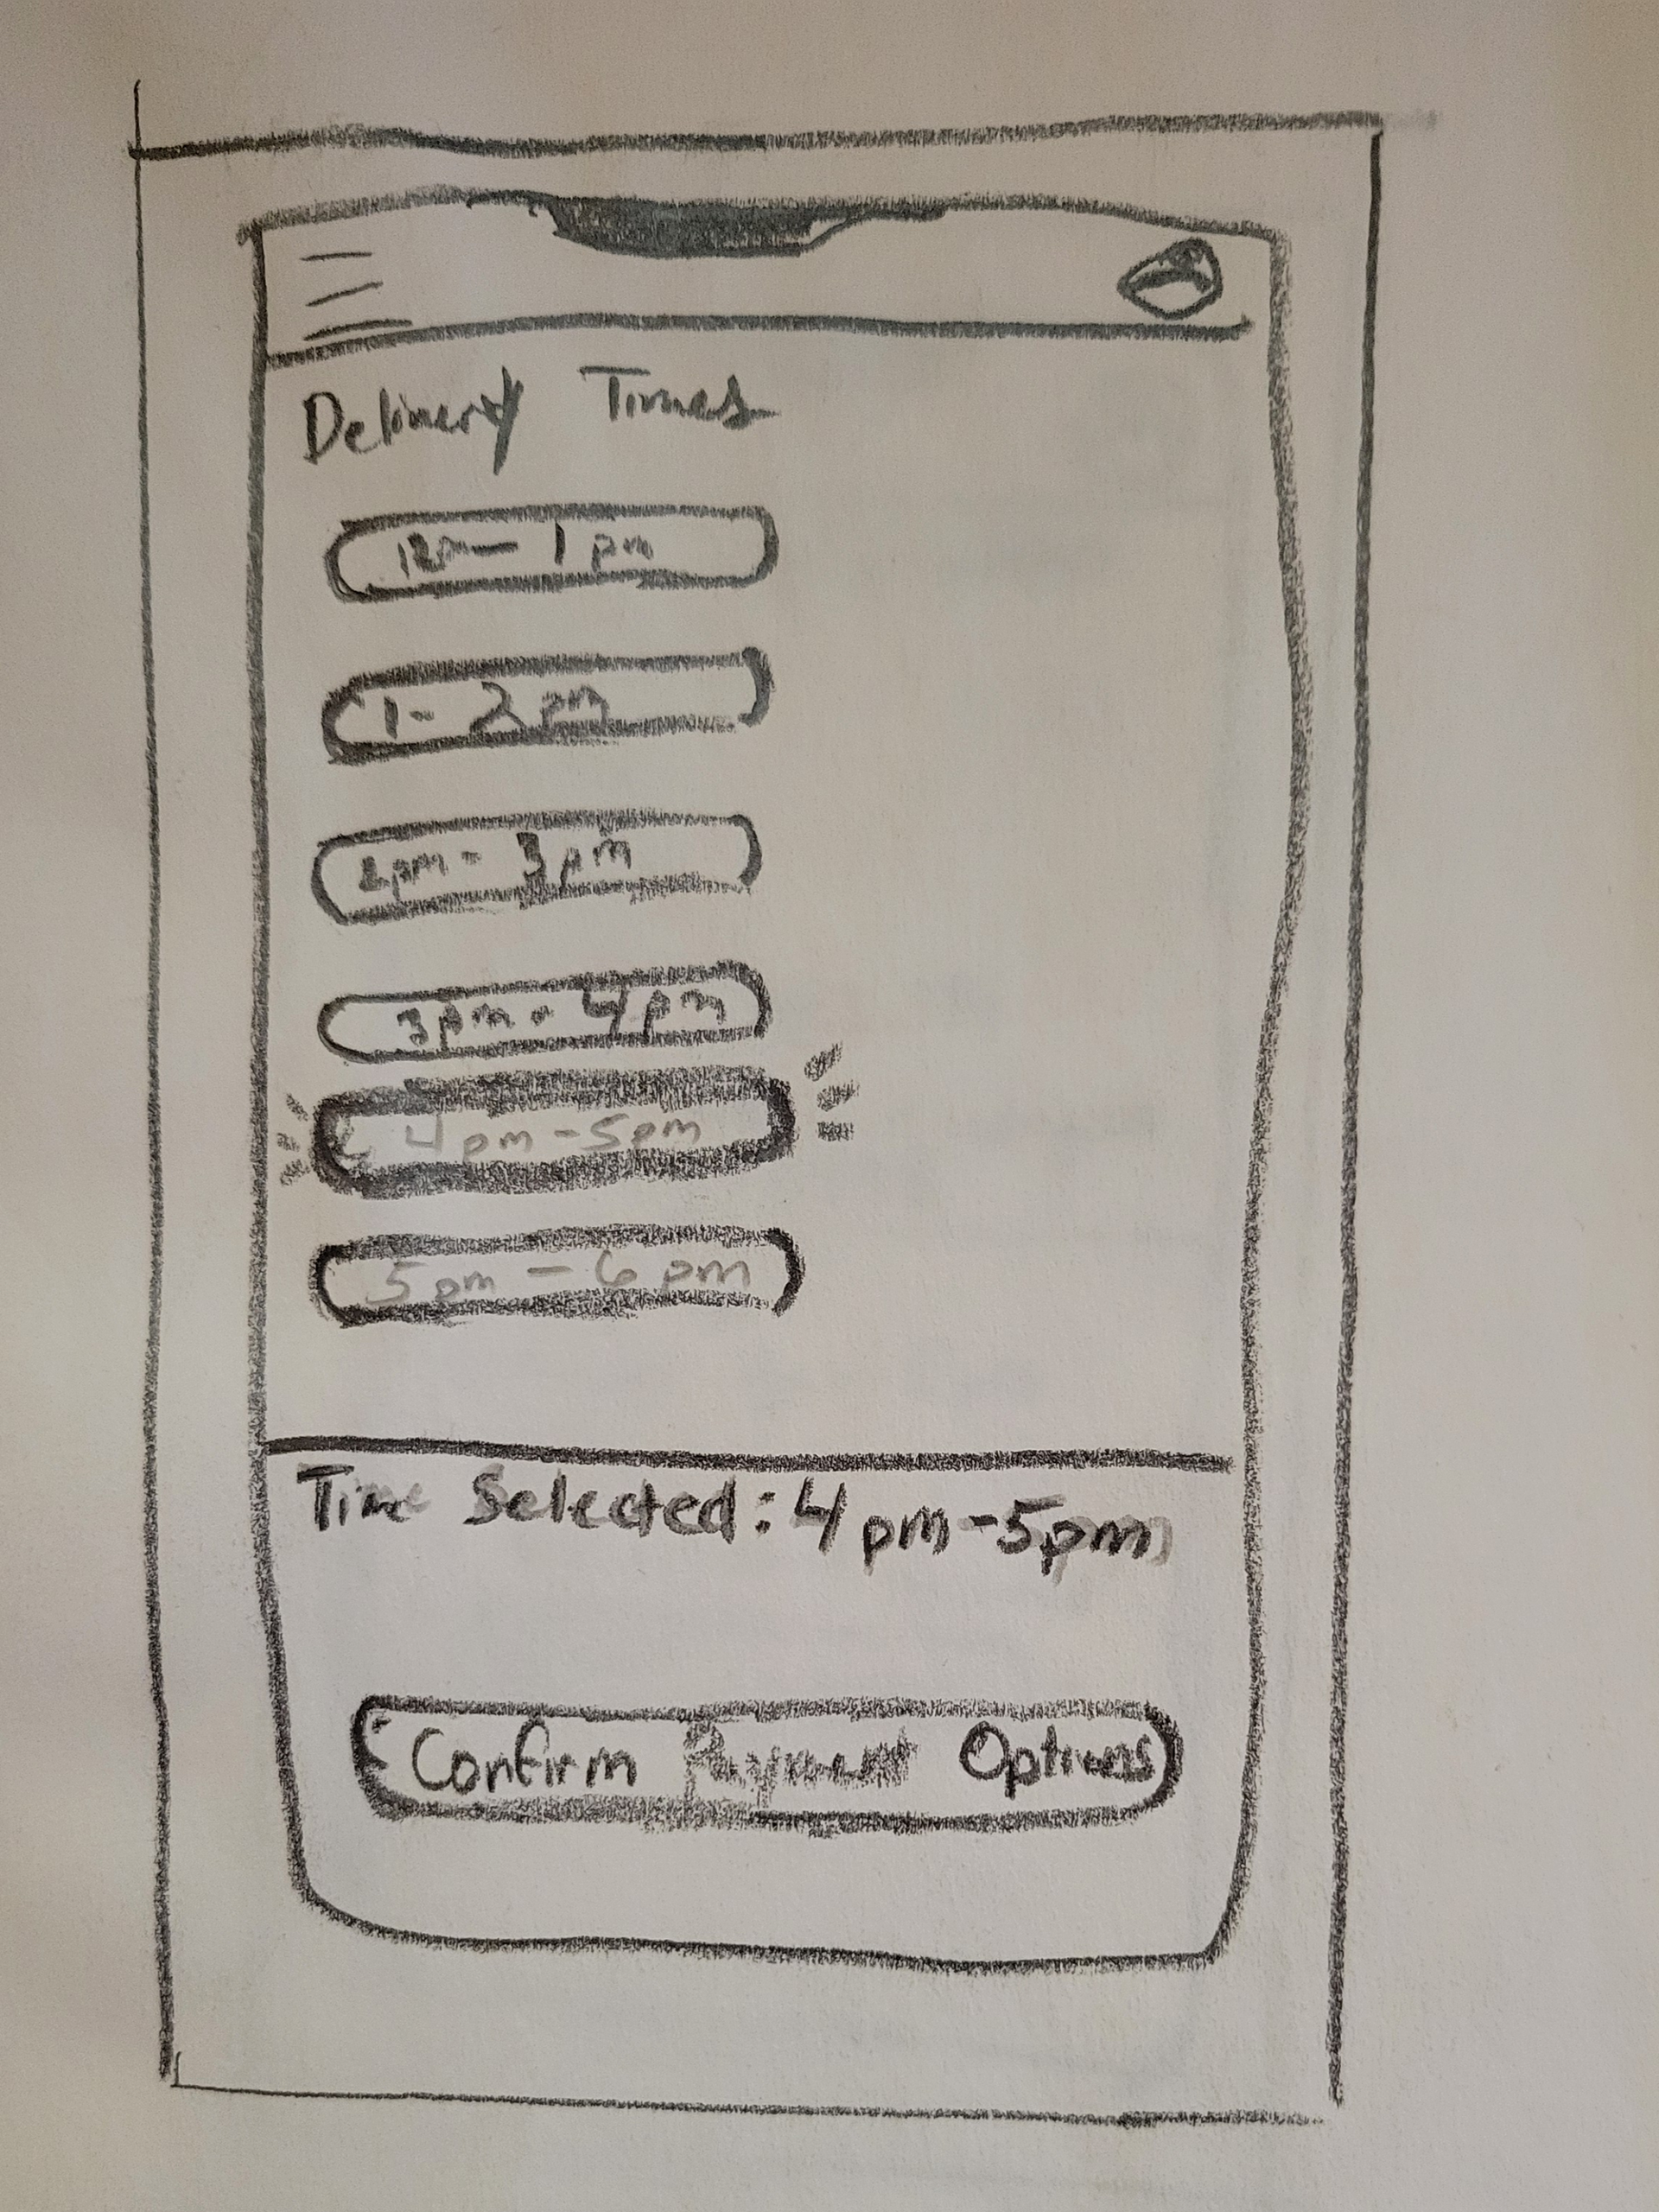 Delivery Times
12pm — 1 pm
1 - 2 pm
2pm - 3pm
3pm - 4pm
4pm - 5pm
5pm - 6pm
Time Selected: 4pm-5pm
Confirm Payment Options